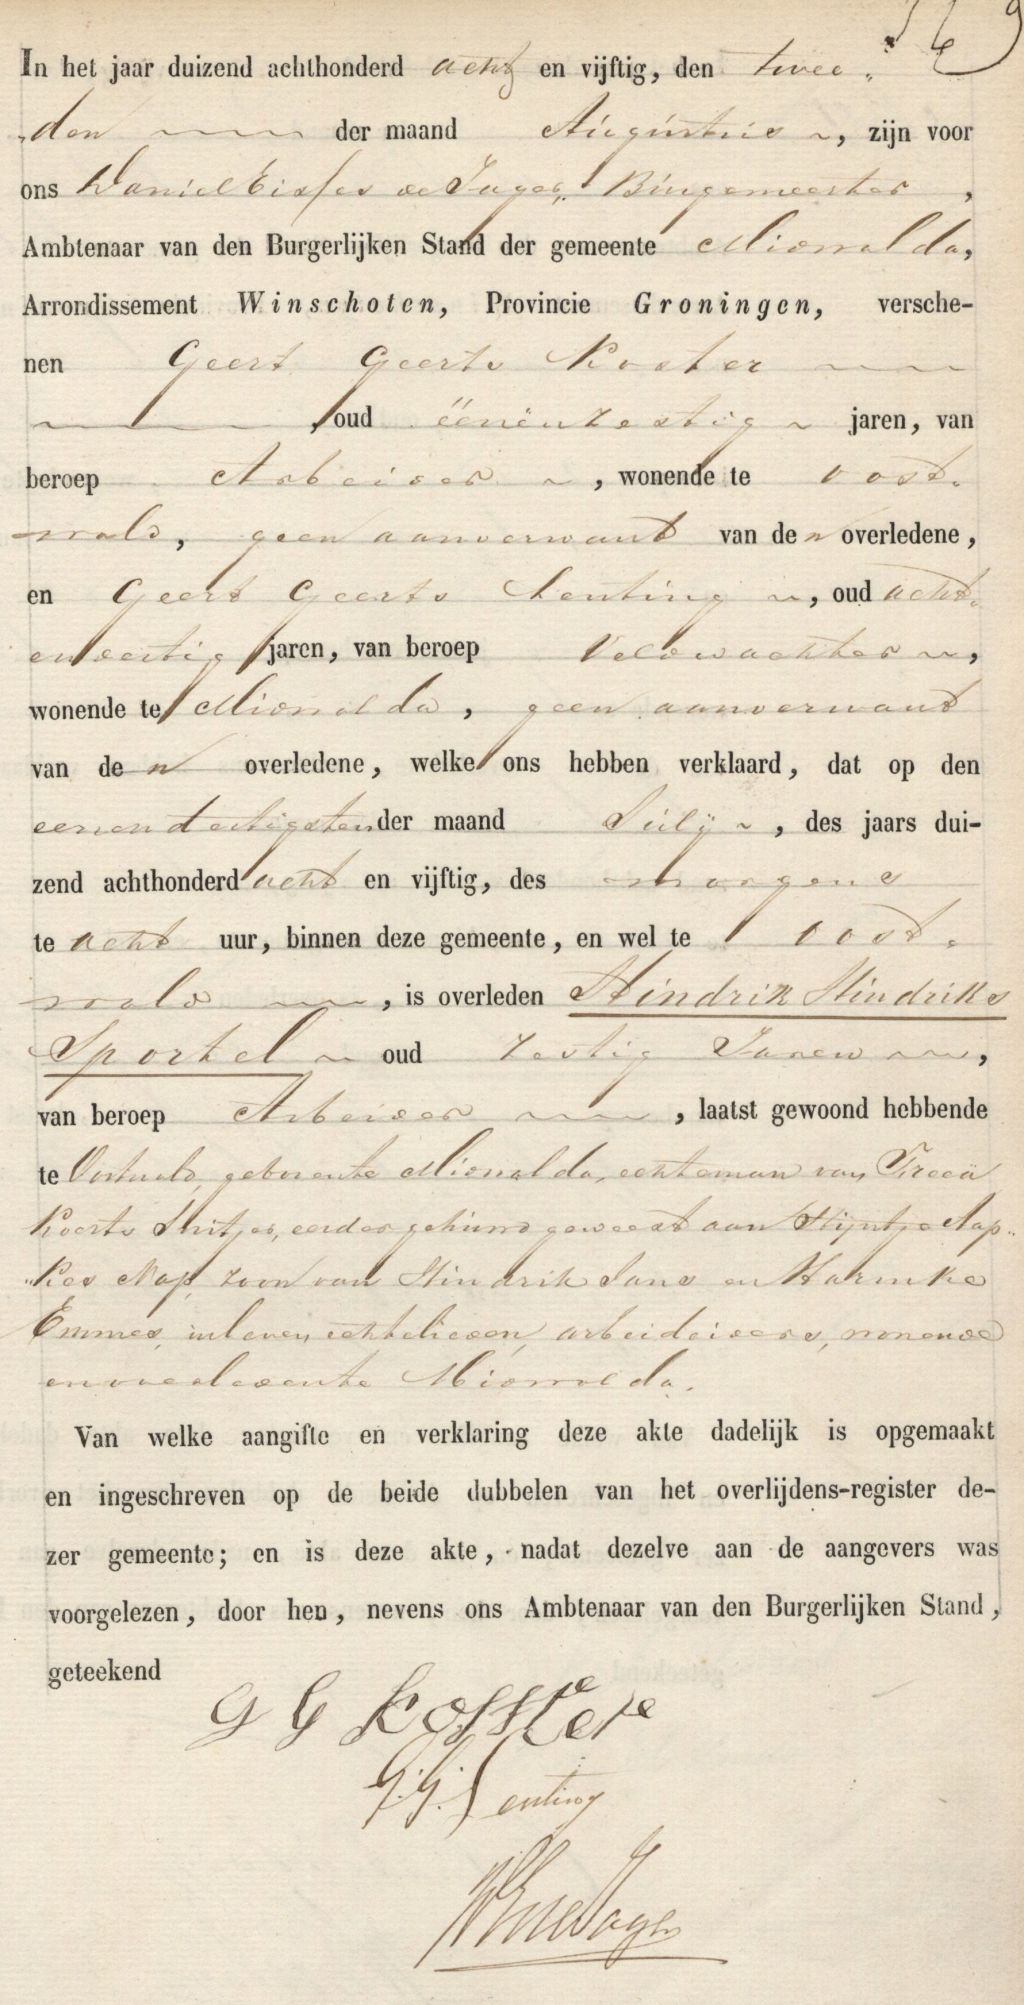 In het jaar duizend achthonderd acht en vijftig, den twee-
den der maand Augustus, zijn voor
ons Daniel de Jager, Burgemeester,
Ambtenaar van den Burgerlijken Stand der gemeente Midwolda,
Arrondissement Winschoten, Provincie Groningen, versche-
nen Geert Geerts Koster
, oud eenenzestig jaren, van
beroep Arbeider, wonende te Oost-
wold, geen aanverwant van den overledene,
en Geert Geerts Lenting, oud acht-
enveertig jaren, van beroep Veldwachter,
wonende te Midwolda, geen aanverwant
van den overledene, welke ons hebben verklaard, dat op den
eenendertigsten der maand Julij, des jaars dui-
zend achthonderd acht en vijftig, des morgens
te acht uur, binnen deze gemeente, en wel te Oost-
wold, is overleden Hindrik Hindriks
Sportel oud zestig Jaren,
van beroep Arbeider, laatst gewoond hebbende
te Oostwold, geboren te Midwolda, echteman van
Koerts, eerder gehuwd geweest aan Stijntje Nap-
kes Nap, zoon van Hindrik Jans en Harmke
Emmes, in leven echtelieden, arbeideiders, wonende
en overleden te Midwolda.
Van welke aangifte en verklaring deze akte dadelijk is opgemaakt
en ingeschreven op de beide dubbelen van het overlijdens-register de-
zer gemeente; en is deze akte, nadat dezelve aan de aangevers was
voorgelezen, door hen, nevens ons Ambtenaar van den Burgerlijken Stand,
geteekend
G G Koster
G. G. Lenting
de Jager